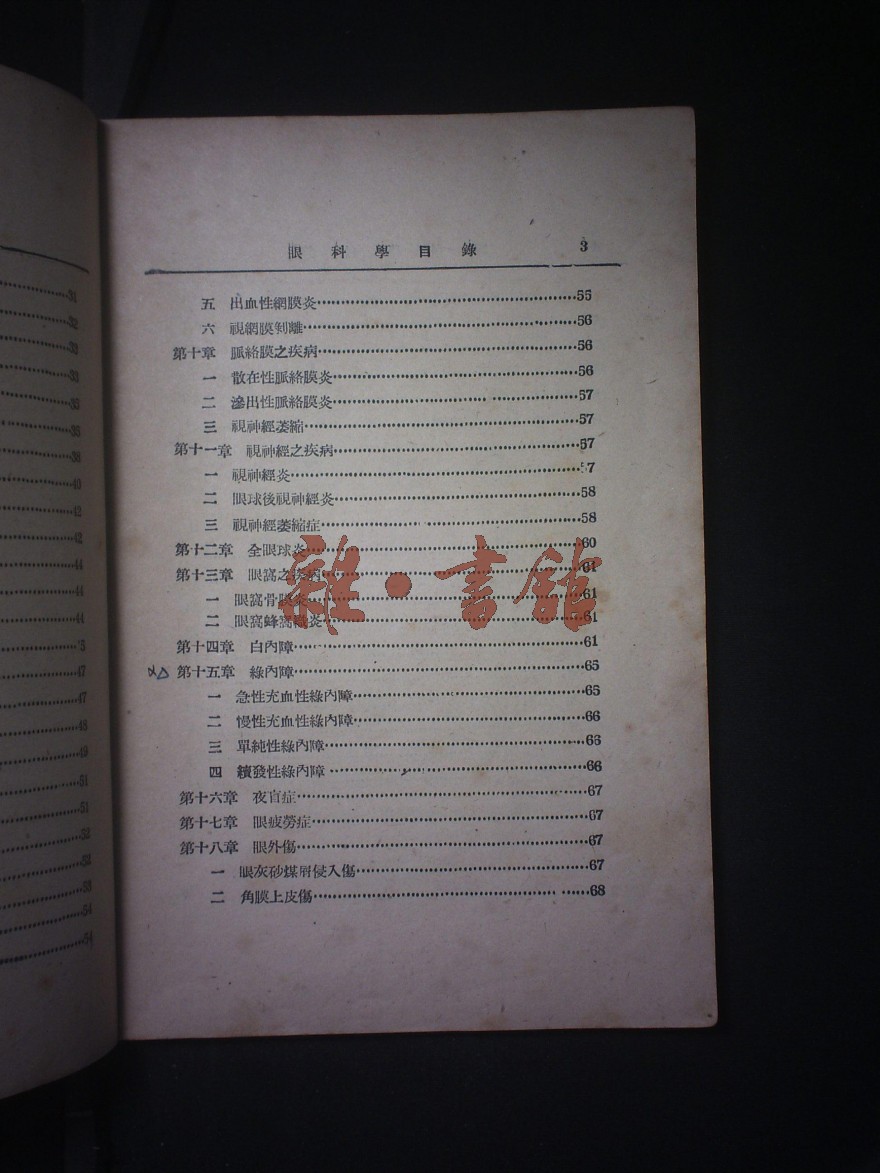 31
32
33
33
35
36
38
40
42
42
44
44
44
5
47
47
48
49
51
51
52
53
53
54
54
眼科學目錄 3
五 出血性網膜炎 55
六 視網膜剝離 56
第十章 脈絡膜之疾病 56
一 散在性脈絡膜炎 56
二 滲出性脈絡膜炎 57
三 視神經萎縮 57
第十一章 視神經之疾病 57
一 視神經炎 57
二 眼球後視神經炎 58
三 視神經萎縮症 58
第十二章 全眼球炎 60
第十三章 眼窩之疾病 61
一 眼窩骨膜炎 61
二 眼窩蜂窩織炎 61
雜·書館
第十四章 白內障 61
第十五章 綠內障 65
一 急性充血性綠內障 65
二 慢性充血性綠內障 66
三 單純性綠內障 66
四 續發性綠內障 66
第十六章 夜盲症 67
第十七章 眼疲勞症 67
第十八章 眼外傷 67
一 眼灰砂煤屑侵入傷 67
二 角膜上皮傷 68